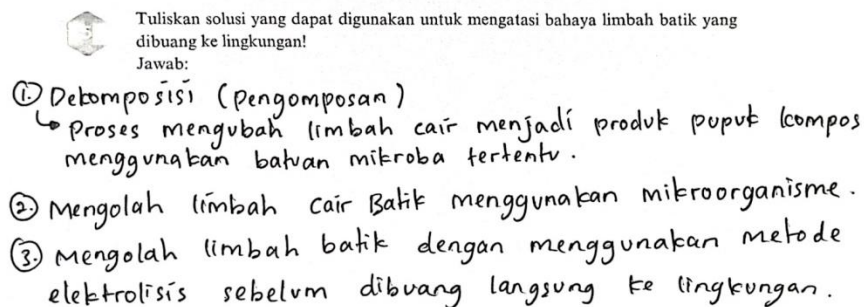 5
Tuliskan solusi yang dapat digunakan untuk mengatasi bahaya limbah batik yang
dibuang ke lingkungan!
Jawab:
1. Dekomposisi (Pengomposan)
↳ Proses mengubah limbah cair menjadi produk pupuk kompos
menggunakan batuan mikroba tertentu.
2. Mengolah limbah cair Batik menggunakan mikroorganisme.
3. Mengolah limbah batik dengan menggunakan metode
elektrolisis sebelum dibuang langsung ke lingkungan.